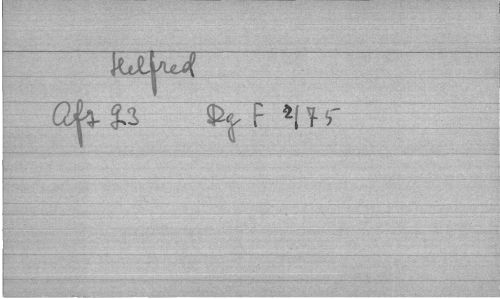 Helfred
Afz 93 Dg F 2/75